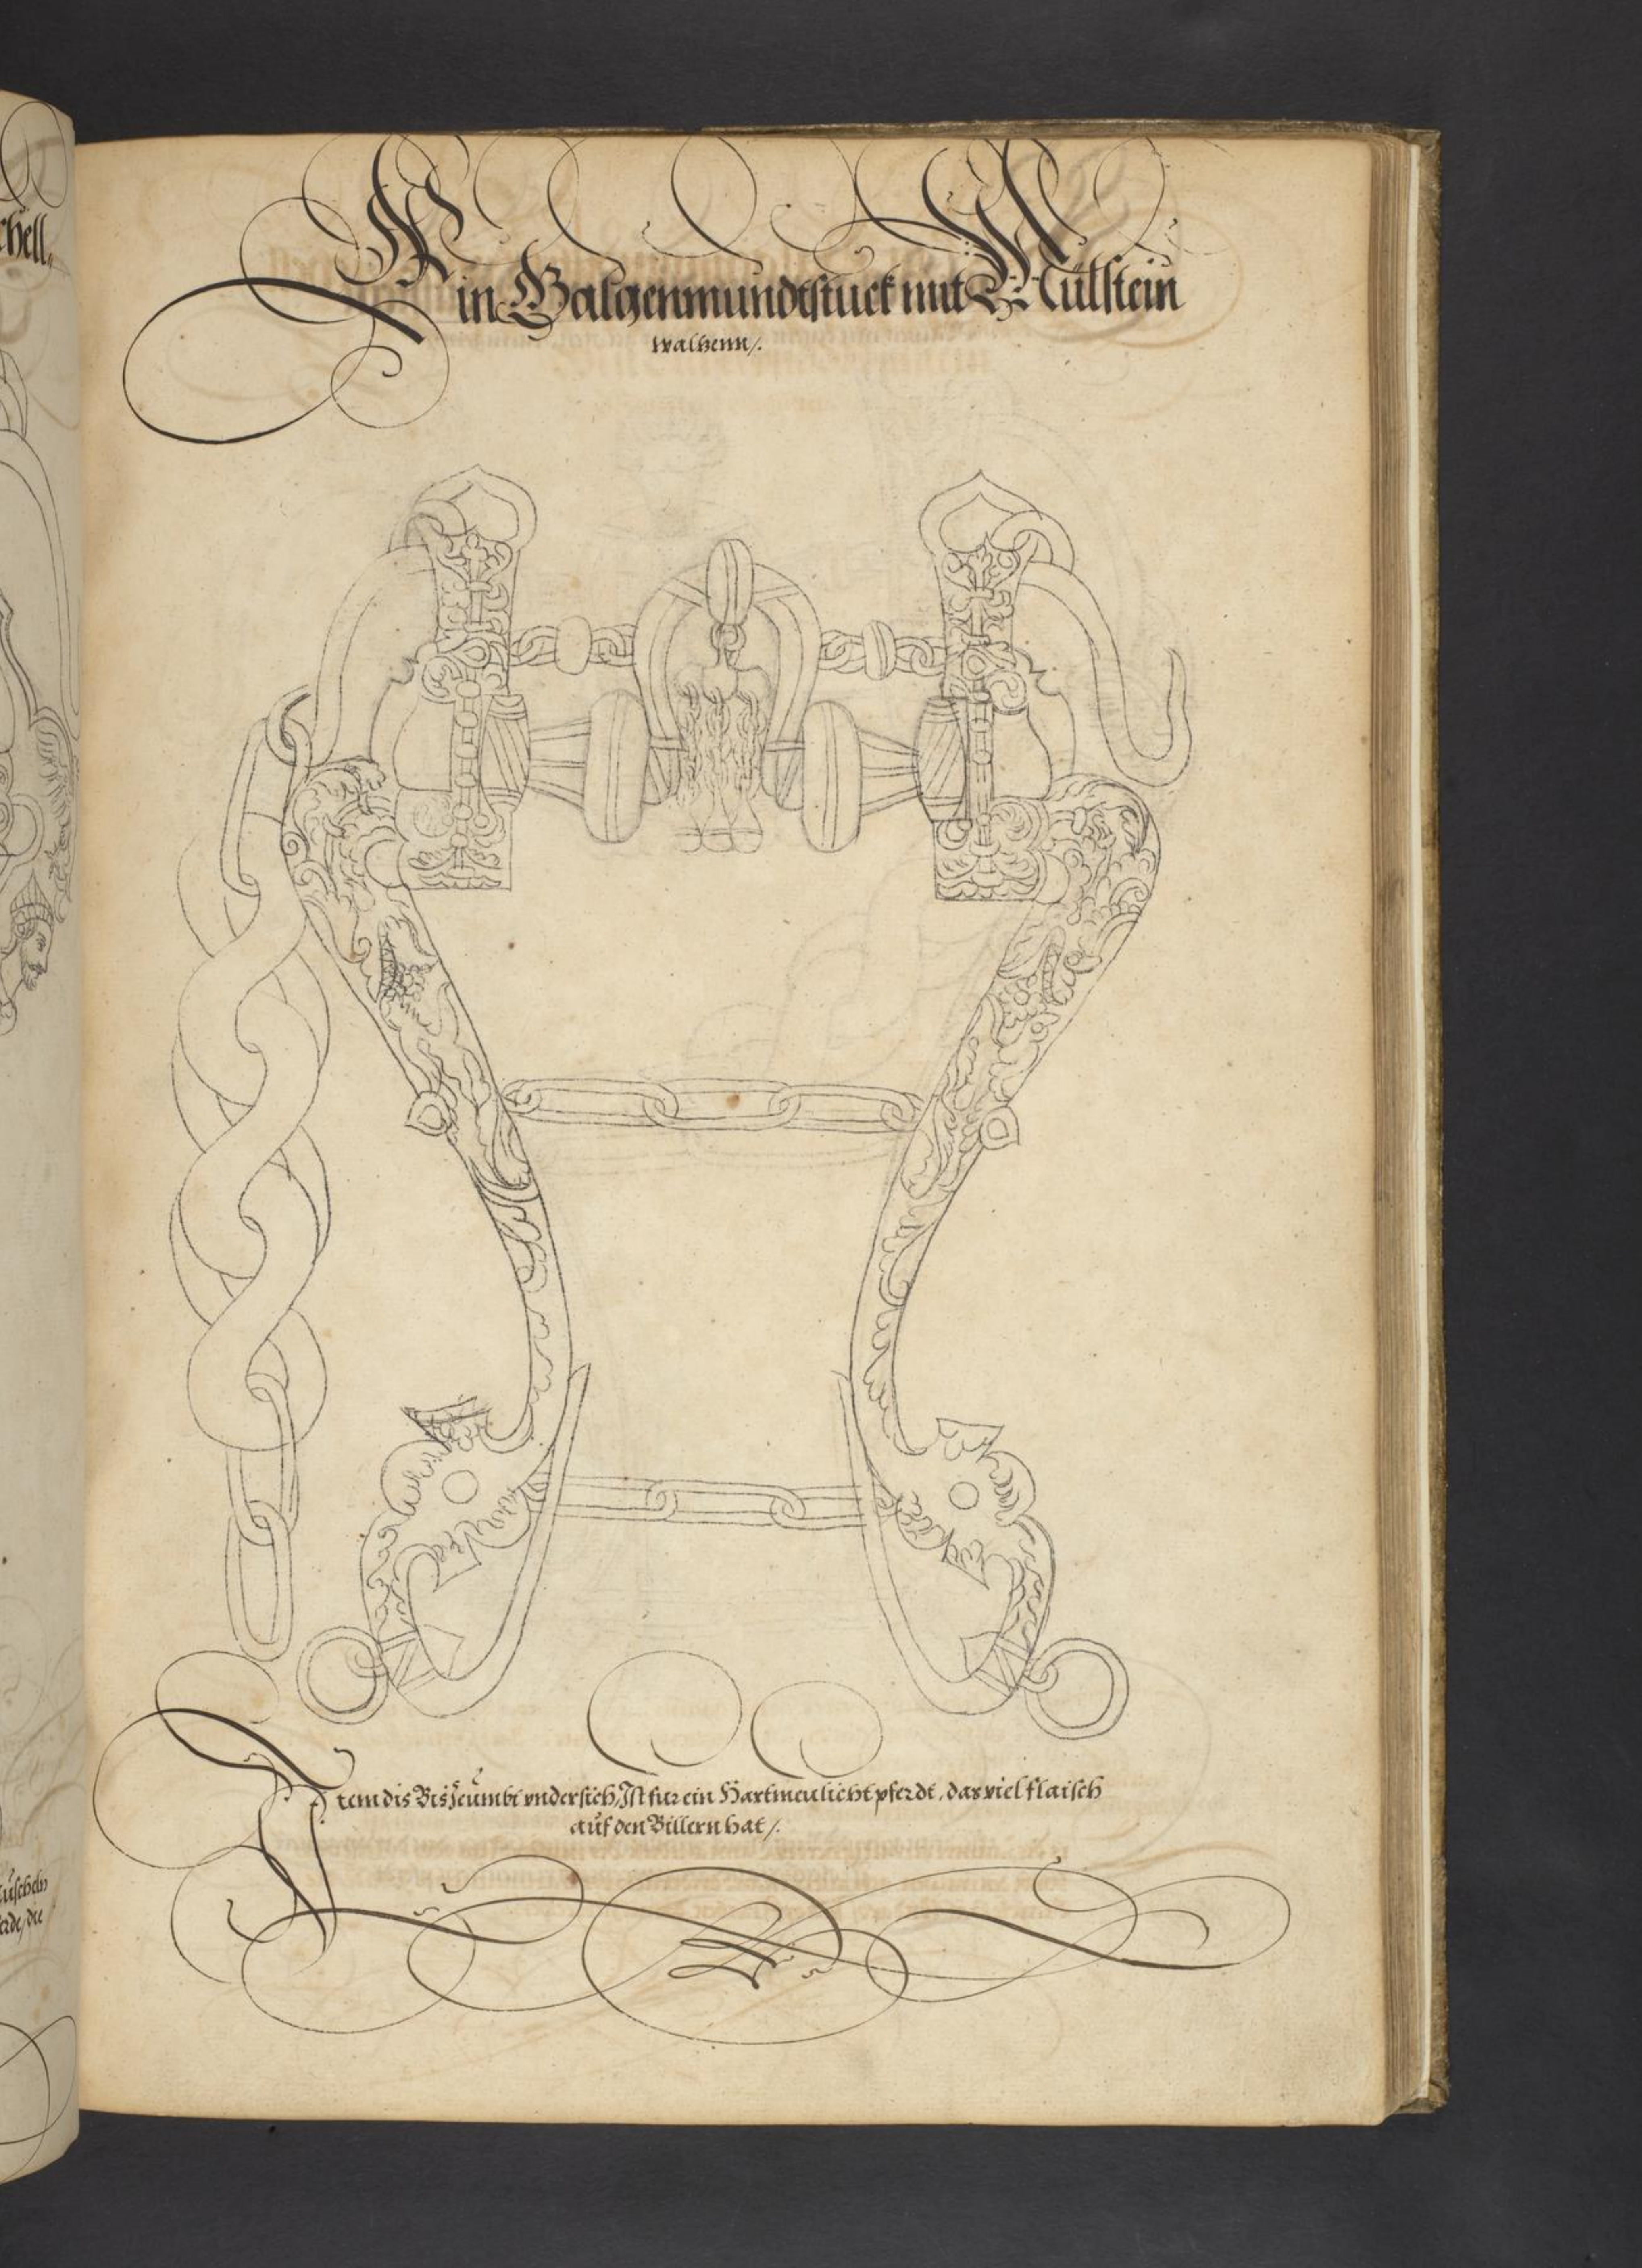 chell.
Ein Galgenmundtstuck mit Mülstein
walhenn/.
Item dis Bis zeumbt vndersich, Ist fur ein Hartmeulicht pferdt, das viel flaisch
auf den Billern hat/.
uscheln
erde, die